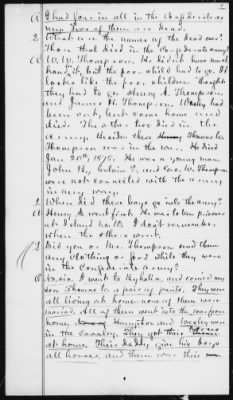 2
A I had four in all in the Confederate
army. Two of them are dead.
Q What are the names of the dead ones?
Those that died in the Confederate army?
A W.W. Thompson. He didn't have much
but the poor child had to go. It
looks like children thought
they had to go. Henry A. Thompson
and James H. Thompson. had
been out, came home and
died. The other two died in the
army. Besides these Thomas
Thompson was in the war. He died
Jan 20th, 1875. He was a young man.
John and Geo. W. Thompson
were not connected with the army
in any way.
Q When did these boys go into the army?
A Henry A. went first. He was taken prisoner
at Island no. 10. I don't remember
when the others went.
Q Did you or Mr. Thompson send them
any clothing or food while they were
in the Confederate army?
A I went to Byhalia, and carried my
son Thomas a pair of pants. They were
all living at home none of them were
married. All of them went into the war from
home. Hamilton and Wesley were
in the cavalry. They got their horses
at home. Their daddy give his boys
all horses, and them were their